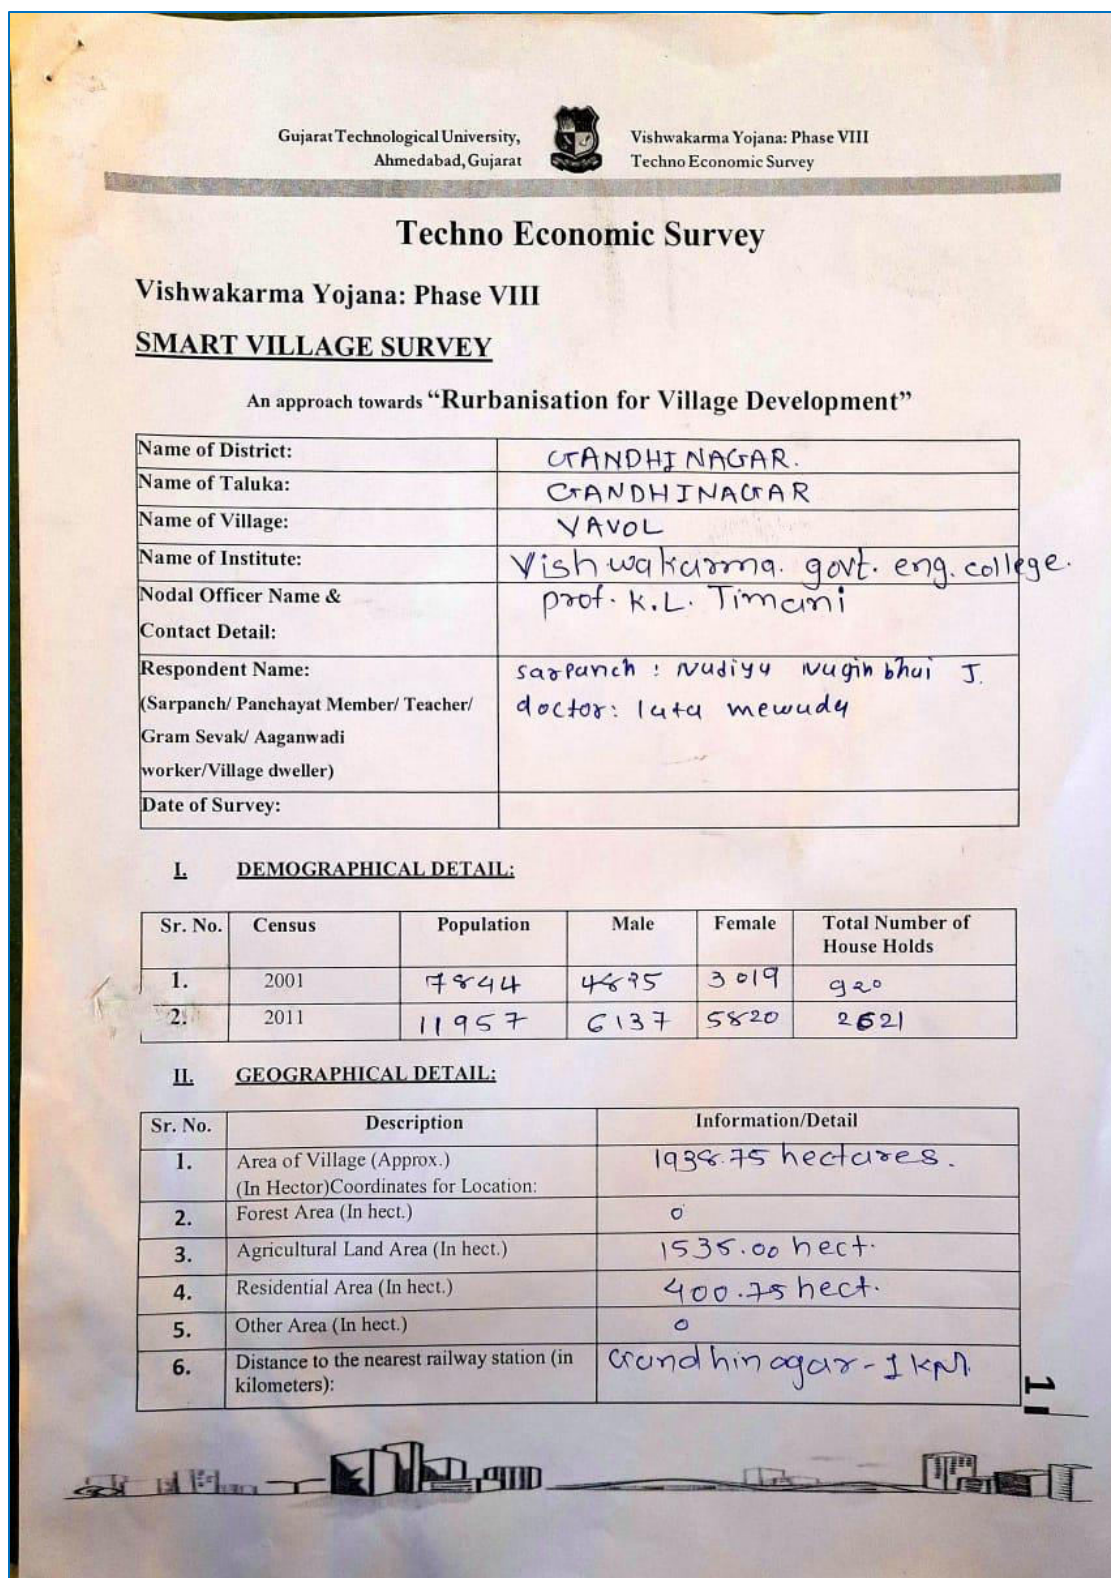 Gujarat Technological University,
Ahmedabad, Gujarat
Vishwakarma Yojana: Phase VIII
Techno Economic Survey
Techno Economic Survey
Vishwakarma Yojana: Phase VIII
SMART VILLAGE SURVEY
An approach towards “Rurbanisation for Village Development”
Name of District: GANDHINAGAR.
Name of Taluka: GANDHINAGAR
Name of Village: VAVOL
Name of Institute: Vishwakarma. govt. eng. college.
Nodal Officer Name & prof. K.L. Timani
Contact Detail:
Respondent Name: sarpanch : Nadiya Naginbhai J.
(Sarpanch/ Panchayat Member/ Teacher/ doctor: lata mewada
Gram Sevak/ Aaganwadi
worker/Village dweller)
Date of Survey:
I. DEMOGRAPHICAL DETAIL:
Sr. No. Census Population Male Female Total Number of
House Holds
1. 2001 7844 3019 920
2. 2011 11957 6137 5820 2621
II. GEOGRAPHICAL DETAIL:
Sr. No. Description Information/Detail
1. Area of Village (Approx.) 1938.75 hectares.
(In Hector)Coordinates for Location:
2. Forest Area (In hect.) 0
3. Agricultural Land Area (In hect.) 1535.00 hect.
4. Residential Area (In hect.) 400.75 hect.
5. Other Area (In hect.) 0
6. Distance to the nearest railway station (in Gandhinagar - 1 KM.
kilometers):
1